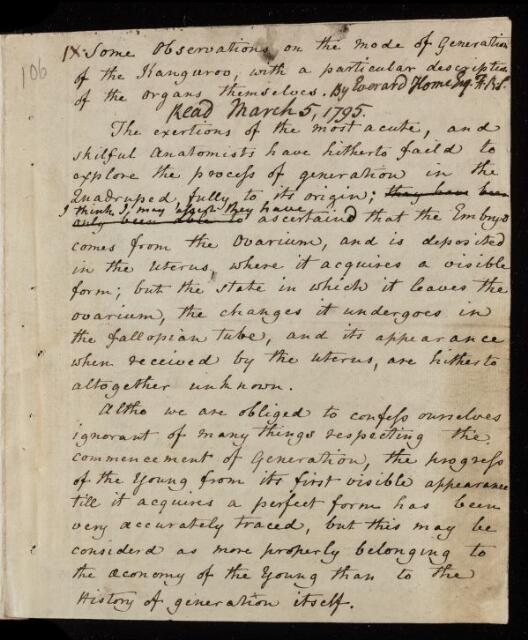 106
IX. Some Observations on the mode of Generation
of the Kanguroo, with a particular description
of the organs themselves. By Everard Home Esq. F.R.S.
Read March 5, 1795.
The exertions of the most acute, and
skilful Anatomists have hitherto faild to
explore the process of generation in the
Quadruped, fully to its origin; they have been
I think I may assert they have
only been able to ascertaind that the Embryo
comes from the Ovarium, and is deposited
in the Uterus, where it acquires a visible
form; but the state in which it leaves the
ovarium, the changes it undergoes in
the fallopian tube, and its appearance
when received by the uterus, are hitherto
altogether unknown.
Altho we are obliged to confess ourselves
ignorant of many things respecting the
commencement of Generation, the progress
of the Young from its first visible appearance
till it acquires a perfect form has been
very accurately traced, but this may be
considerd as more properly belonging to
the œconomy of the Young than to the
History of generation itself.